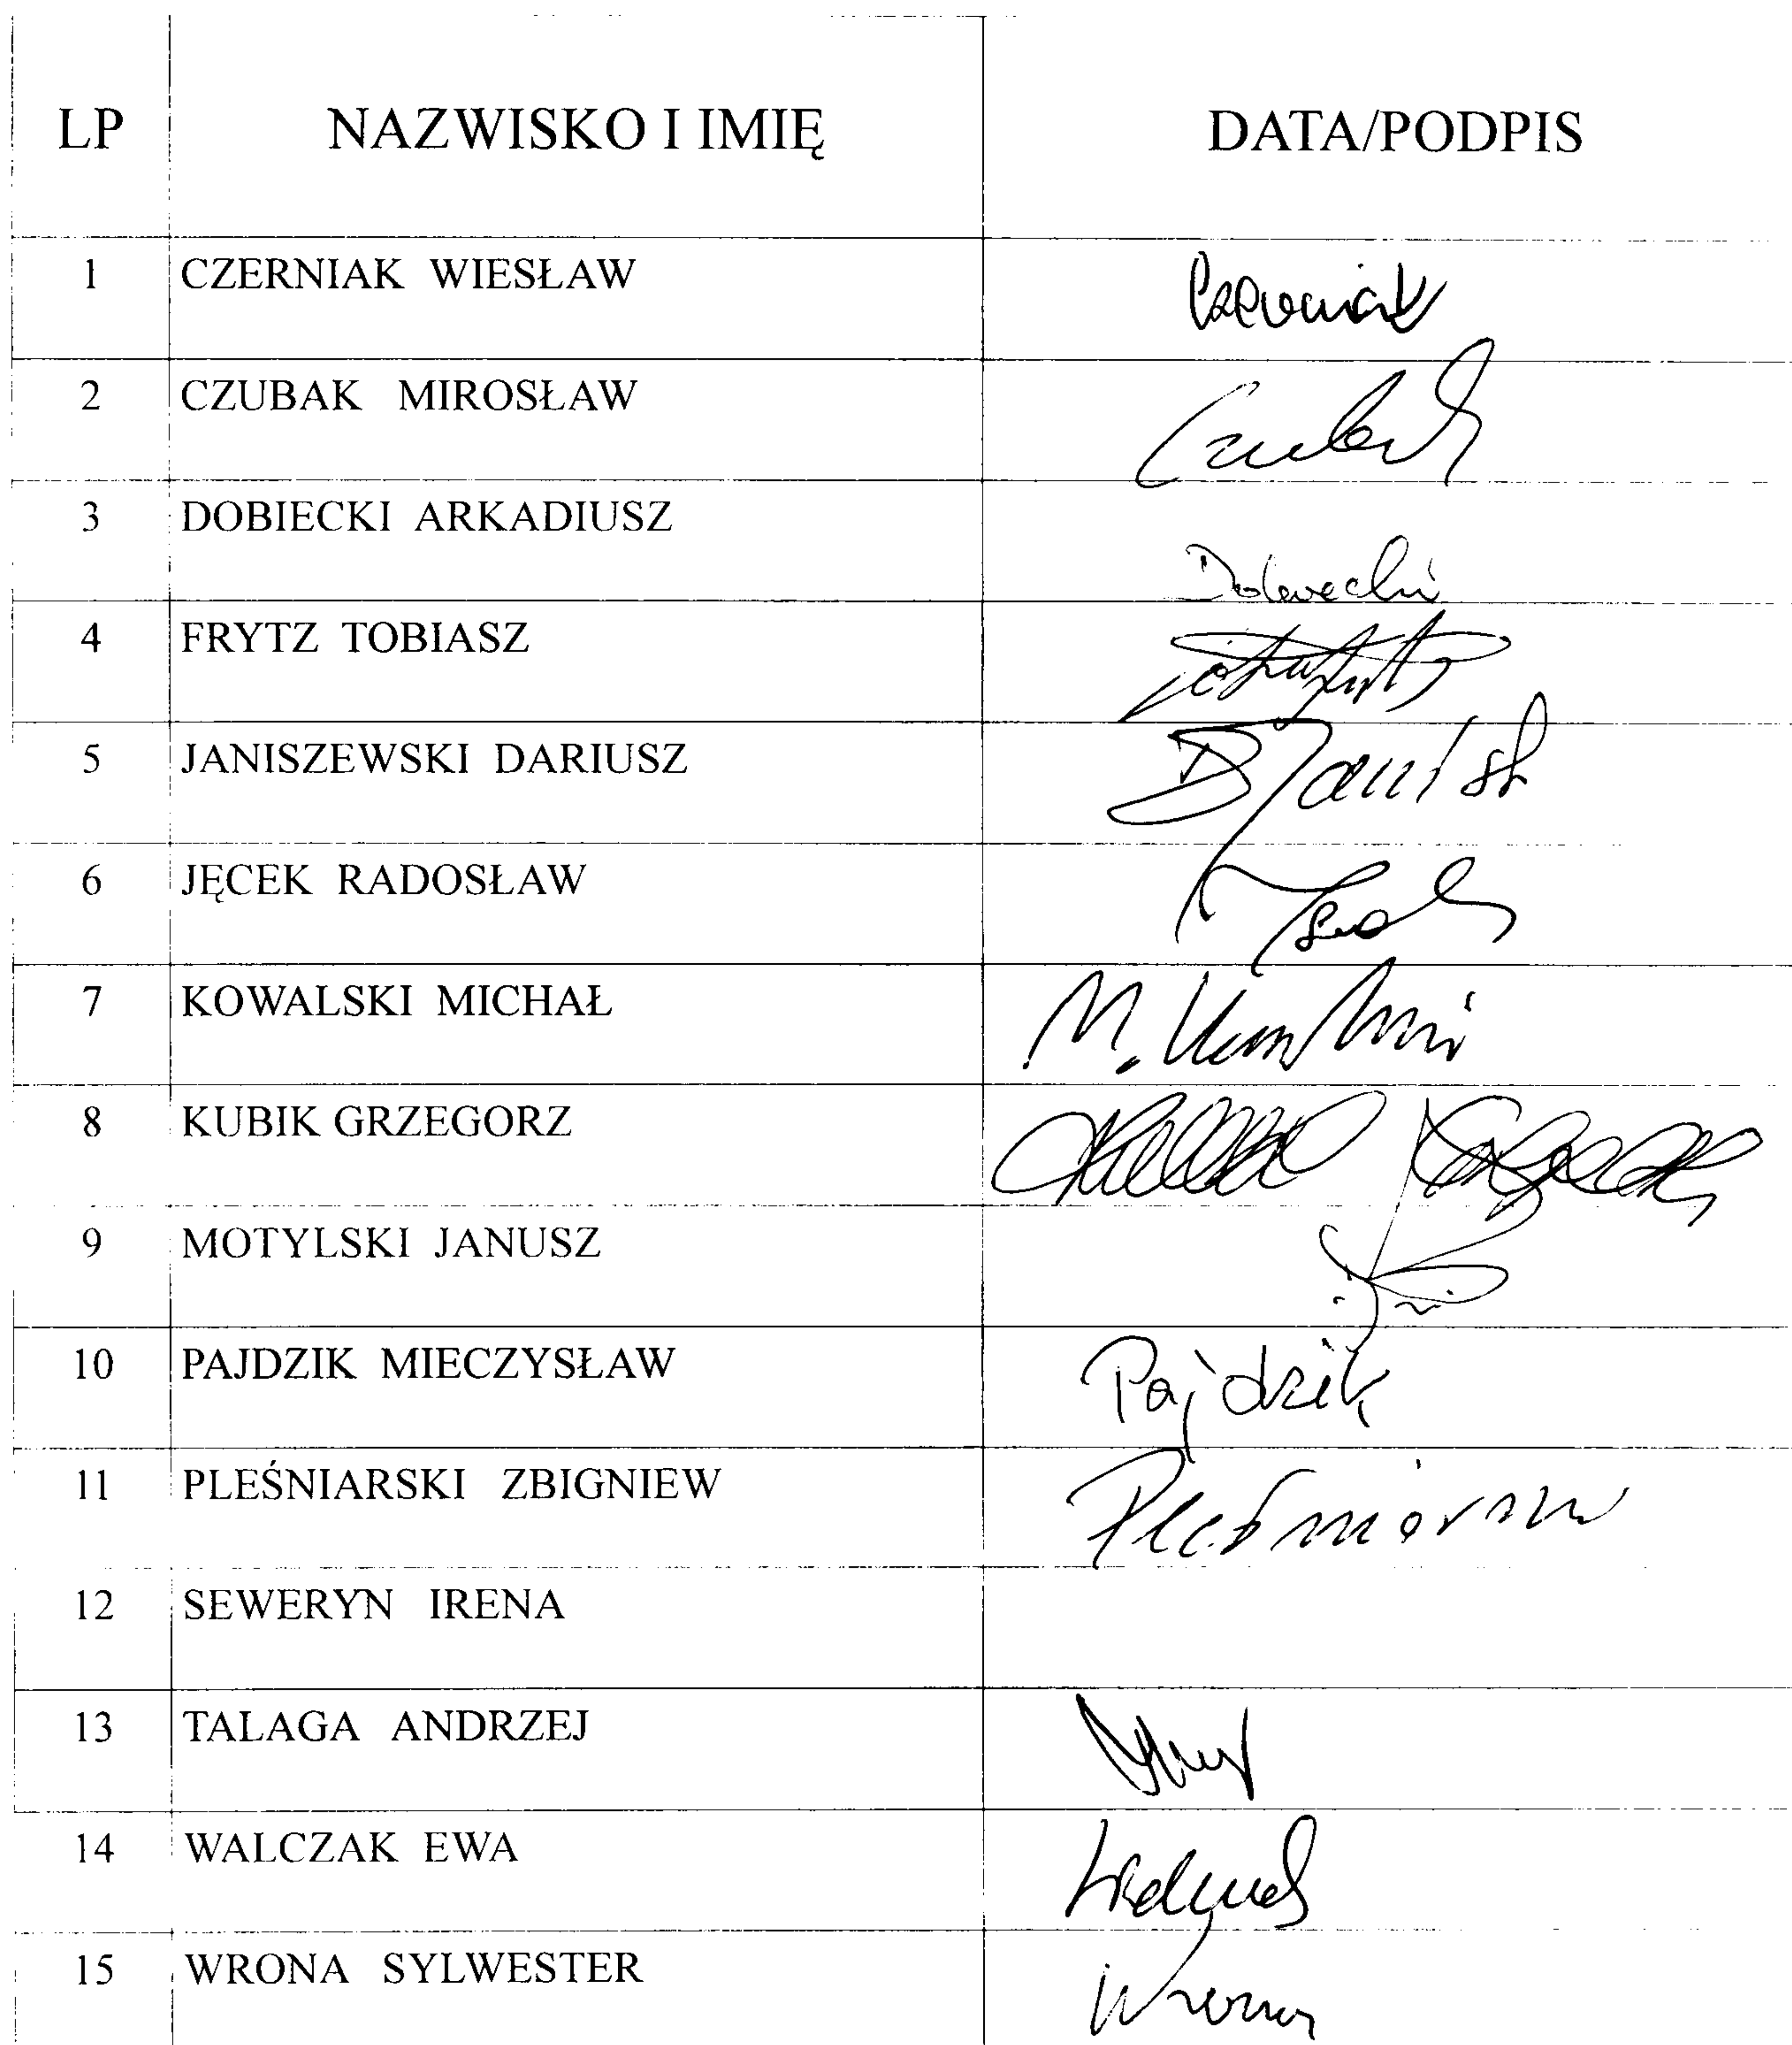 LP NAZWISKO I IMIĘ DATA/PODPIS
1 CZERNIAK WIESŁAW Czerniak
2 CZUBAK MIROSŁAW Czubak
3 DOBIECKI ARKADIUSZ Dobiecki
4 FRYTZ TOBIASZ
5 JANISZEWSKI DARIUSZ
6 JĘCEK RADOSŁAW
7 KOWALSKI MICHAŁ
8 KUBIK GRZEGORZ
9 MOTYLSKI JANUSZ
10 PAJDZIK MIECZYSŁAW Pajdzik
11 PLEŚNIARSKI ZBIGNIEW
12 SEWERYN IRENA
13 TALAGA ANDRZEJ
14 WALCZAK EWA
15 WRONA SYLWESTER Wrona